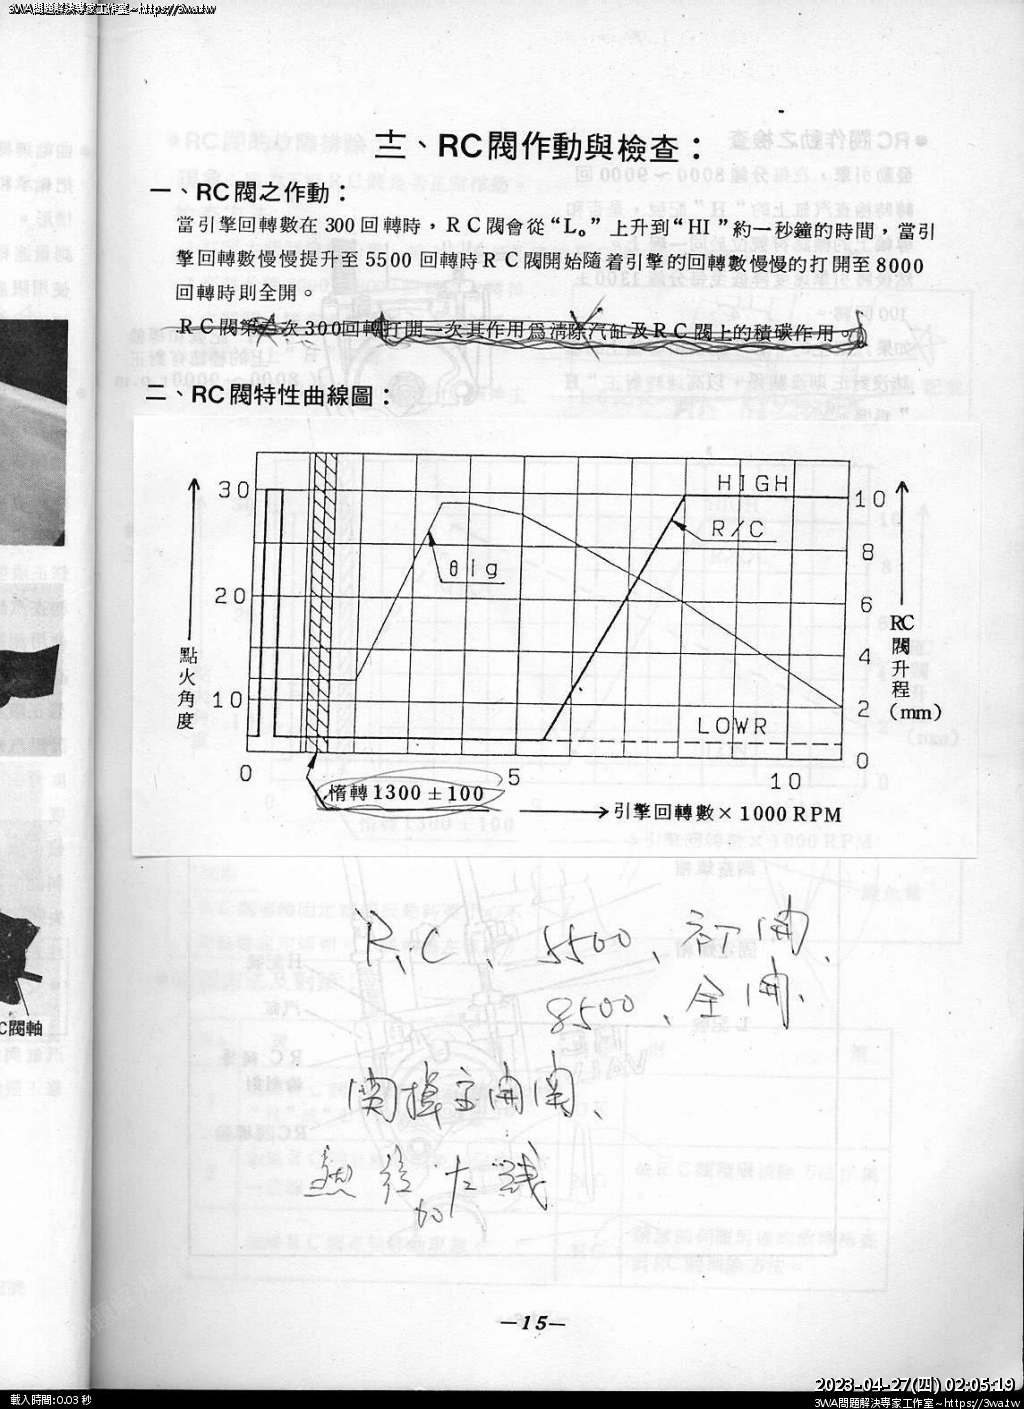 3WA問題解決專家工作室~https://3wa.tw
C閥軸
RC閥作動與檢查：
一、RC閥之作動：
當引擎回轉數在 300 回轉時，RC閥會從“L。”上升到“HI”約一秒鐘的時間，當引
擎回轉數慢慢提升至 5500 回轉時RC閥開始隨着引擎的回轉數慢慢的打開至8000
回轉時則全開。
RC閥第 次300回轉打開一次其作用爲清除汽缸及RC閥上的積碳作用。
二、RC閥特性曲線圖：
30
20
10
點火角度
HIGH
R/C
θIg
LOWR
10
8
6
4
2
0
RC閥升程(mm)
0
5
10
惰轉1300±100
引擎回轉數×1000RPM
R.C、5500、打開、
8500、全開、
關掉主開關、
熱後
—15—
2023-04-27(四) 02:05:19
載入時間:0.03 秒
3WA問題解決專家工作室~https://3wa.tw